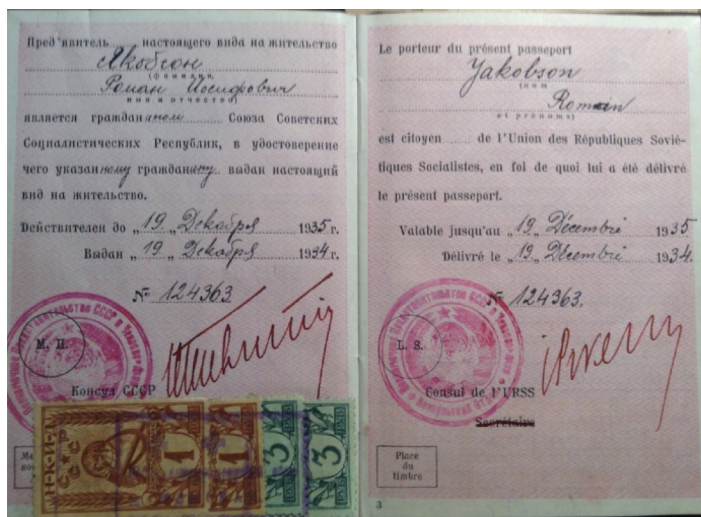 Пред'явитель настоящего вида на жительство
Якобсон
(фамилия,
Роман Иосифович
имя и отчество)
является гражданином Союза Советских
Социалистических Республик, в удостоверение
чего указанному гражданину выдан настоящий
вид на жительство.
Действителен до „19„ Декабря 1935 г.
Выдан „19„ Декабря 1934 г.
№ 124363
М. П.
Консул СССР
Н·К·И·Д
СССР
1
1
3
3
Le porteur du présent passeport
Yakobson
(nom
Romain
et prénoms)
est citoyen de l'Union des Républiques Sovié-
tiques Socialistes, en foi de quoi lui a été délivré
le présent passeport.
Valable jusqu'au „19„ Décembre 1935
Délivré le „19„ Décembre 1934.
№ 124363.
L. S.
Consul de l'URSS
Secrétaire
Place
du
timbre
3